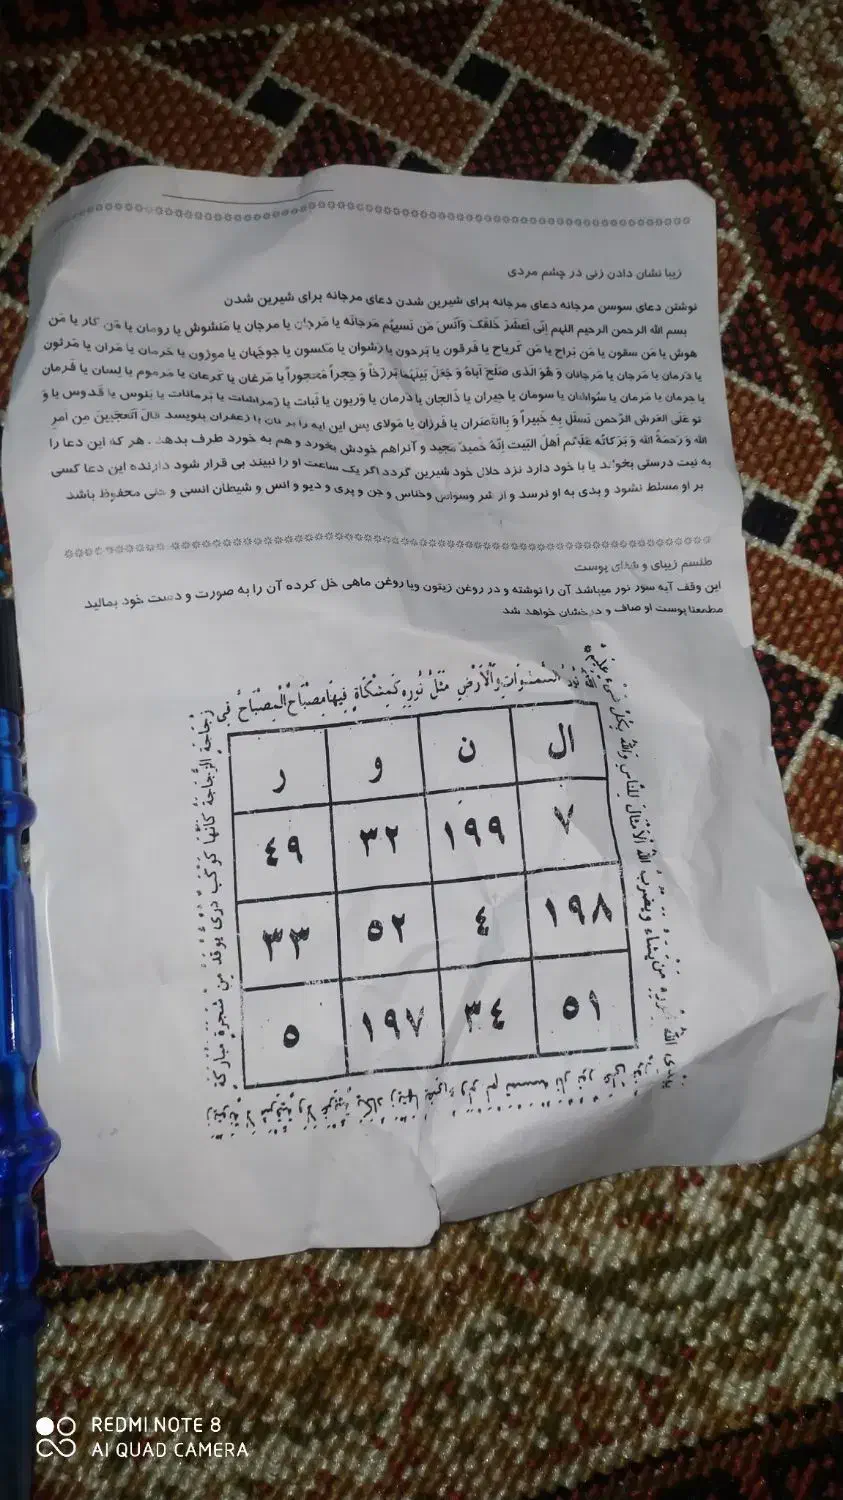 زیبا نشان دادن زنی در چشم مردی
نوشتن دعای سوسن مرجانه دعای مرجانه برای شیرین شدن دعای مرجانه برای شیرین شدن
بسم الله الرحمن الرحیم اللهم إنّی من نسیهُم مَرجانَه یا مَرجان یا مرجان یا مَنشوش یا رومان یا مَن کار یا مَن
هوش یا مَن سقون یا مَن بَراح یا مَن کریاح یا فَرقون یا بَرحون یا رَشوان یا مَکسون یا جوجَهان یا موزون یا خَرمان یا مَران یا مَرثون
یا دَرمان یا مَرجان یا مَرجانان وَ هُوَ الَذی وَ جَعَلَ بَینَهُما بَرزَخاً وَ حِجراً مَحجوراً یا مَرغان یا کَرعان یا مَرموم یا لِسان یا فَرمان
یا جرمان یا مَرمان یا سومان یا جیران یا ذالجان یا دَرمان یا وَریون یا نَبات یا زمراشات یا بَرمانات یا بَنوس یا قَدوس یا وَ
تو عَلَی العَرش الرَّحمن بِهِ خَبیراً وَ یا فَرزان یا مَولای پس این ایه را بر نان با زعفران بنویسد قالَ مِن أمرِ
الله وَ رَحمَةُ الله وَ بَرَکاتُه عَلَیکُم أهلَ البَیت إنَّهُ حَمیدٌ مَجید و آنراهم خودش بخورد و هم به خورد طرف بدهد . هر که این دعا را
به نیت درستی بخواند یا با خود دارد نزد حلال خود شیرین گردد اگر یک ساعت او را نبیند بی قرار شود دارنده این دعا کسی
بر او مسلط نشود و بدی به او نرسد و از شر وسواس وخناس و جن و پری و دیو و انس و شیطان انسی و جنی محفوظ باشد
طلسم زیبای و شفای پوست
این وقف آیه سور نور میباشد آن را نوشته و در روغن زیتون ویا روغن ماهی خل کرده آن را به صورت و دست خود بمالید
مطمعنا پوست او صاف و درخشان خواهد شد
اللهُ نُورُ السَّمٰوَاتِ وَالْأَرْضِ مَثَلُ نُورِهِ كَمِشْكَاةٍ فِيهَا مِصْبَاحٌ الْمِصْبَاحُ فِي
زُجَاجَةٍ الزُّجَاجَةُ كَأَنَّهَا كَوْكَبٌ دُرِّيٌّ يُوقَدُ مِن شَجَرَةٍ مُبَارَكَةٍ
زيتونة لا شرقية ولا غربية يكاد زيتها يضيء ولو لم تمسسه نار نور
يَهْدِي اللهُ لِنُورِهِ مَن يَشَاء وَيَضْرِبُ اللهُ الْأَمْثَالَ لِلنَّاسِ وَاللهُ بِكُلِّ شَيْءٍ عَلِيمٌ
ال ن و ر
٧ ١٩٩ ٣٢ ٤٩
١٩٨ ٤ ٥٢ ٣٣
٥١ ٣٤ ١٩٧ ٥
REDMI NOTE 8
AI QUAD CAMERA